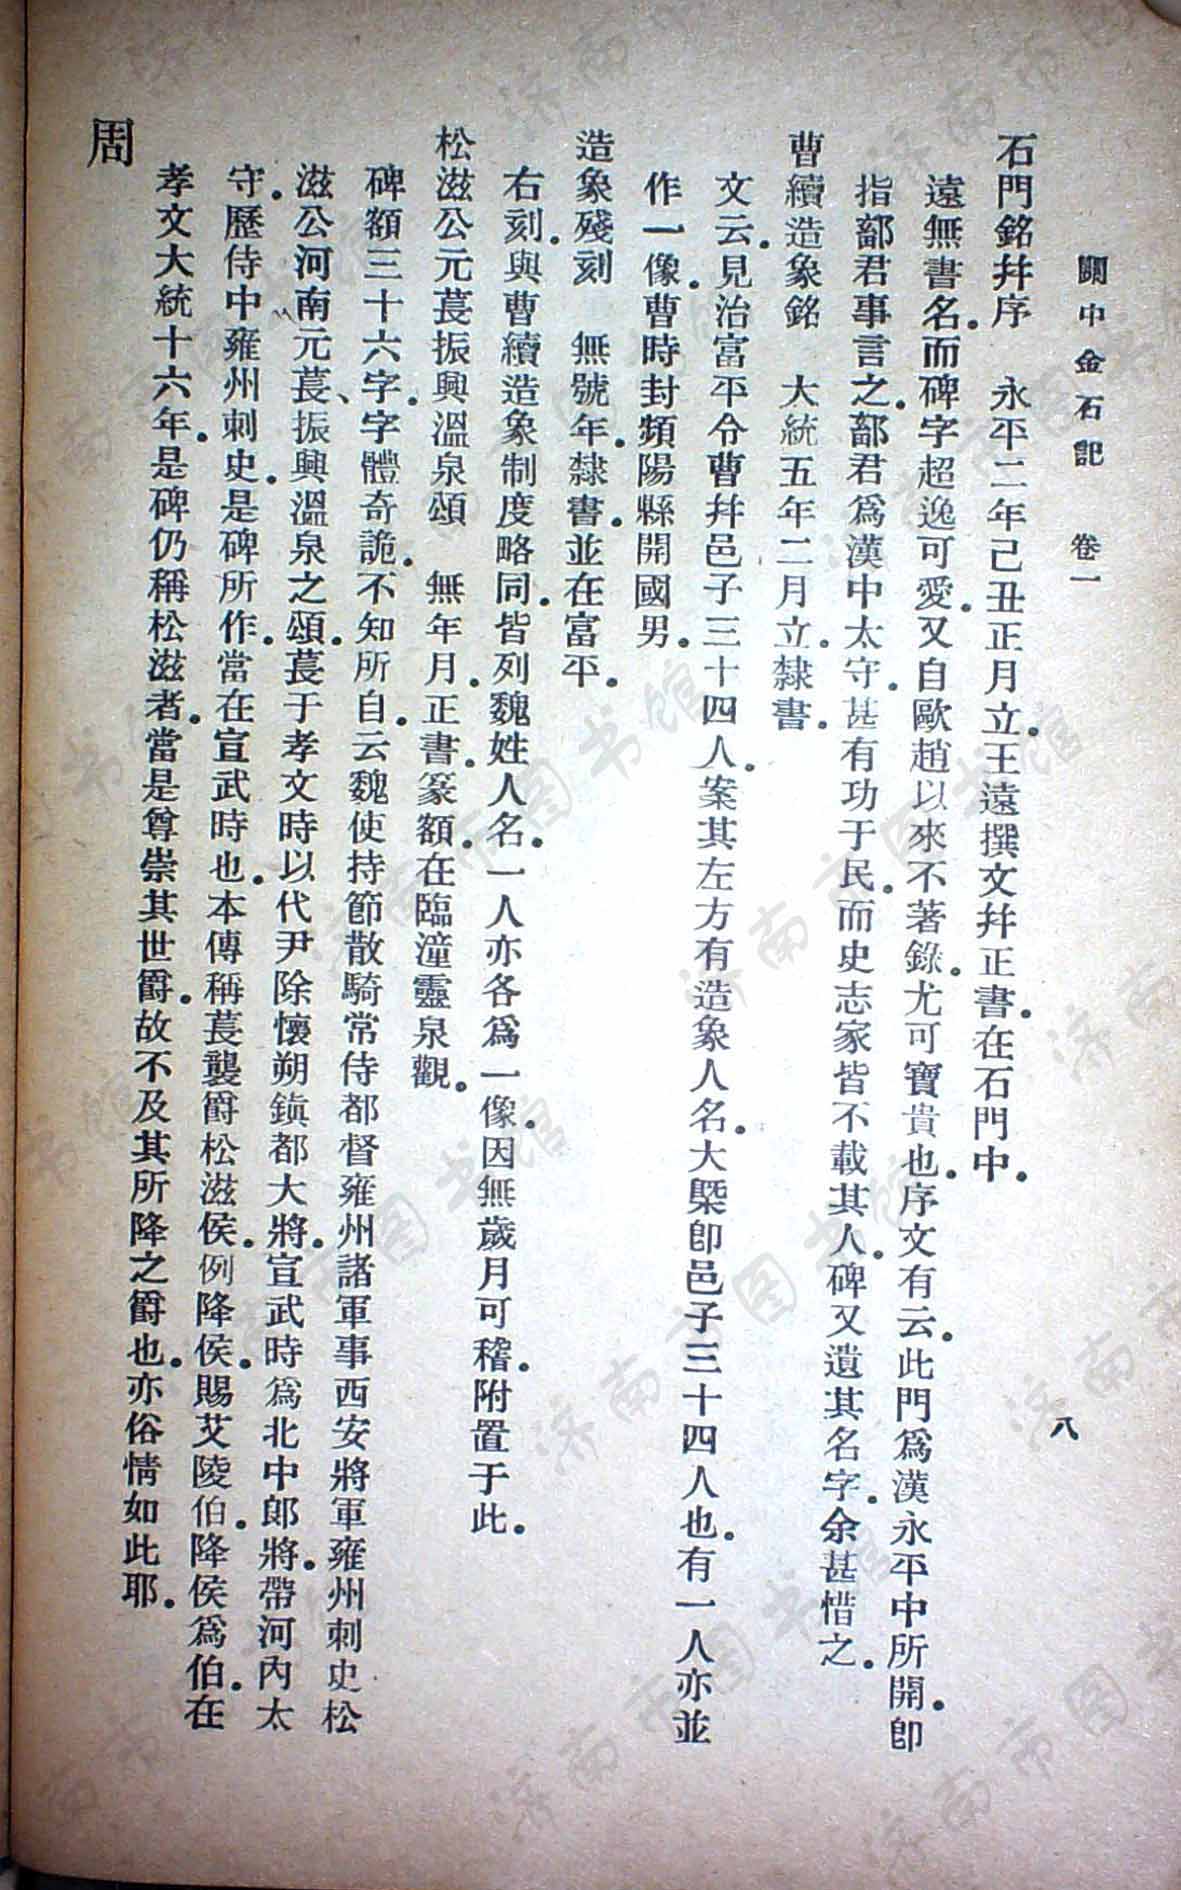 關中金石記 卷一 八
石門銘幷序 永平二年己丑正月立。王遠撰文幷正書。在石門中。
遠無書名。而碑字超逸可愛。又自歐趙以來不著錄。尤可寶貴也。序文有云。此門爲漢永平中所開。卽
指鄐君事言之。鄐君爲漢中太守。甚有功于民。而史志家皆不載其人。碑又遺其名字。余甚惜之。
曹續造象銘 大統五年二月立。隸書。
文云。見治富平令曹幷邑子三十四人。案其左方有造象人名。大槩卽邑子三十四人也。有一人亦並
作一像。曹時封頻陽縣開國男。
造象殘刻 無號年。隸書。並在富平。
右刻。與曹續造象制度略同。皆列魏姓人名。一人亦各爲一像。因無歲月可稽。附置于此。
松滋公元萇振興溫泉頌 無年月。正書。篆額。在臨潼靈泉觀。
碑額三十六字。字體奇詭。不知所自。云魏使持節散騎常侍都督雍州諸軍事西安將軍雍州刺史松
滋公河南元萇、振興溫泉之頌。萇于孝文時以代尹除懷朔鎮都大將。宣武時爲北中郎將。帶河內太
守。歷侍中雍州刺史。是碑所作。當在宣武時也。本傳稱萇襲爵松滋侯。例降侯。賜艾陵伯。降侯爲伯。在
孝文大統十六年。是碑仍稱松滋者。當是尊崇其世爵。故不及其所降之爵也。亦俗情如此耶。
周
济南市图书馆